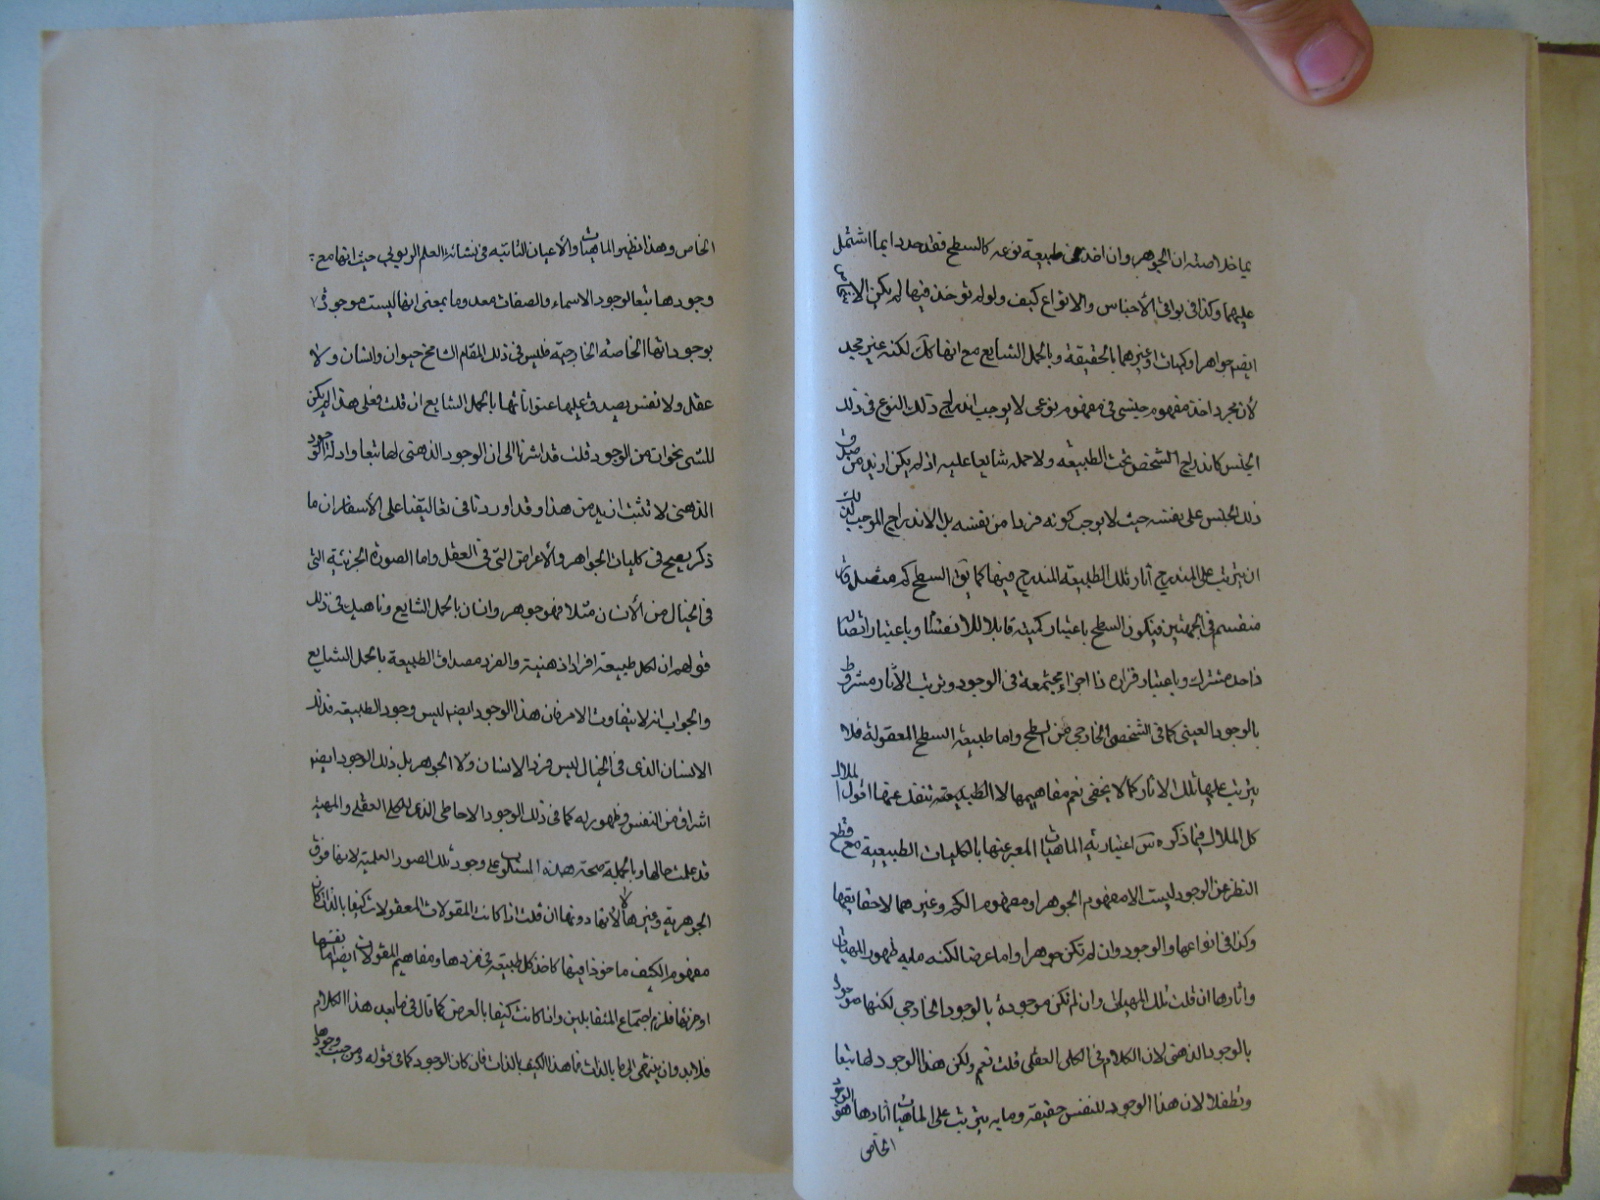 بما خلاصته ان الجوهر وان اخذ في طبيعة نوعه كالسطح فقد حدد ايما اشتمل
عليهما وكذا في بواقي الأجناس والانواع كيف ولو لم تؤخذ فيها لم يكن الاشخاص
ايضه جواهر او كميات او غيرهما بالحقيقة وبالحمل الشايع مع انها كك لكنه غير مجد
لأن مجرد اخذ مفهوم جنسى في مفهوم نوعى لا يوجب اندراج ذلك النوع في ذلك
الجنس كاندراج الشخص تحت الطبيعة ولا حمله شايعا عليه اذ لم يكن ازيد من صدق
ذلك الجنس على نفسه حيث لا يوجب كونه فردا من نفسه بل الاندراج الموجب لذلك
ان يترتب على المندرج آثار تلك الطبيعة المندرج فيها كما يق السطح كم متصل قار
منقسم في الجهتين فيكون السطح باعتبار كميته قابلا للانقسام وباعتبار اتصاله
ذا حد مشترك وباعتبار قراره ذا اجزاء مجتمعة في الوجود وترتب الآثار مشروط
بالوجود العيني كما في الشخص الخارجي من السطح واما طبيعة السطح المعقولة فلا
يترتب عليها تلك الاثار كما لا يخفى نعم مفاهيمها لا الطبيعة تنفك عنها اقول الملاك
كل الملاك فيما ذكره س اعتبارية الماهيات المعبر عنها بالكليات الطبيعية مع قطع
النظر عن الوجود ليست الا مفهوم الجوهر او مفهوم الكم وغيرهما لاحقايقها
وكذا في انواعها والوجود وان لم تكن جوهرا واما عرضا لكنه ما به ظهور المهيات
واثارها ان قلت تلك المهيات وان لم تكن موجودة بالوجود الخارجي لكنها موجودة
بالوجود الذهنى لان الكلام في الكلى العقلى قلت نعم ولكن هذا الوجود لها تبعا
وتطفلا لان هذا الوجود للنفس حقيقة وما به يترتب على الماهيات اثارها هو الوجود
الخاص
الخاص وهذا نظير الماهيات والأعيان الثابتة في نشاة العلم الربوبى حيث انها مع
وجودها تبعا لوجود الاسماء والصفات معدوما بمعنى انها ليست موجودة
بوجوداتها الخاصة الخارجية فليس في ذلك المقام الشامخ حيوان وانسان ولا
عقل ولا نفس يصدق عليها عنواناتها بالحمل الشايع ان قلت فعلى هذا لم يكن
للشى نحوان من الوجود قلت قد اشرنا الى ان الوجود الذهنى لها تبعا وادلة الوجود
الذهنى لا تثبت ازيد من هذا وقد اوردنا في تعاليقنا على الأسفار ان ما
ذكر يصح في كليات الجواهر والأعراض التى في العقل واما الصورة الجزئية التى
في الخيال من الأنسان مثلا فهو جوهر وانسان بالحمل الشايع وناهيك في ذلك
قولهم ان لكل طبيعة افراد اذهنية والفرد مصداق الطبيعة بالحمل الشايع
والجواب انه لا يتفاوت الامر فان هذا الوجود ايضه ليس وجود الطبيعة فذلك
الانسان الذى في الخيال ليس فرد الانسان ولا الجوهر بل ذلك الوجود ايضه
اشراق من النفس وظهور به كما في ذلك الوجود الاحاطى الذى للكلى العقلى والمهية
قد علمت حالها وبالجملة صحة هذه السلوب على وجود تلك الصور العلمية لانها فوق
الجوهرية وغيرها لا لأنها دونها ان قلت اذا كانت المقولات المعقولات كيفا بالذات كان
مفهوم الكيف ماخوذا فيها كاخذ كل طبيعة في فردها ومفاهيم المقولات ايضه اما نفسها
او جزئها فلزم اجتماع المتقابلين واذا كانت كيفا بالعرض كما قال في ما بعد هذا الكلام
فلا بد وان ينتهى الى ما بالذات فما هذا الكيف بالذات فان كان الوجود كما في قوله ومن حيث وجودها